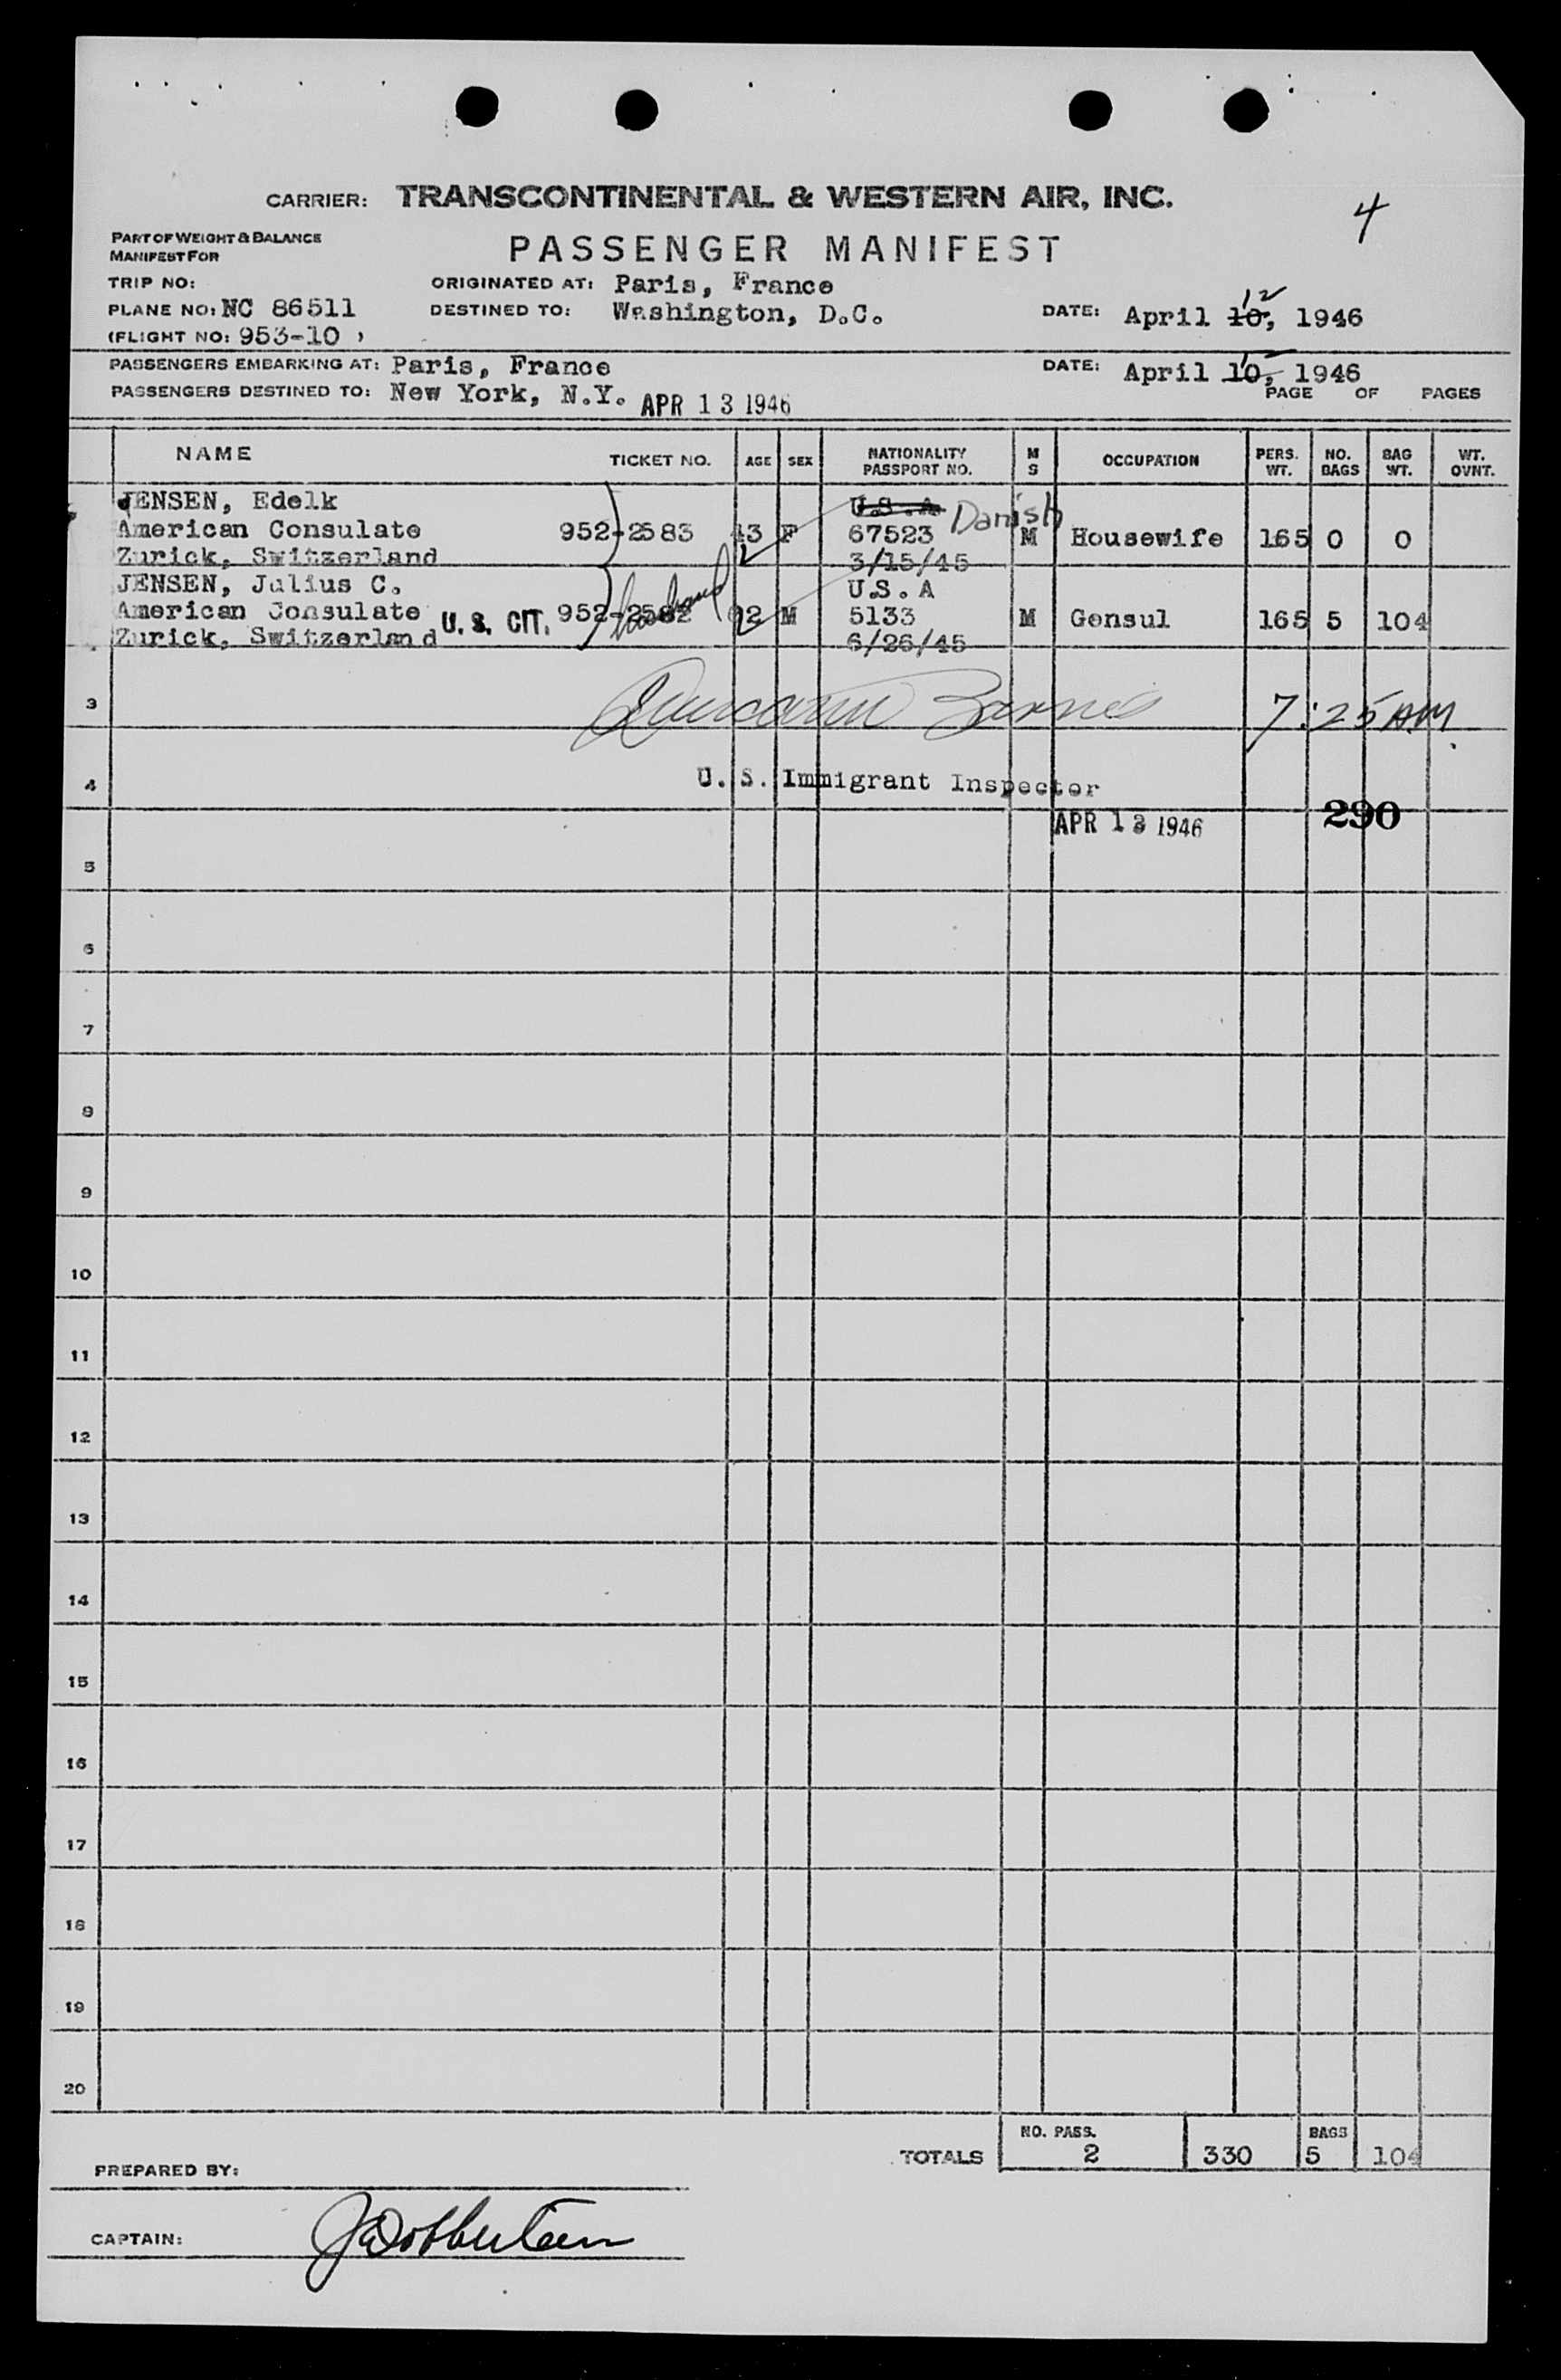 4
CARRIER: TRANSCONTINENTAL & WESTERN AIR, INC.
PART OF WEIGHT & BALANCE
MANIFEST FOR
PASSENGER MANIFEST
TRIP NO:
ORIGINATED AT: Paris, France
PLANE NO: NC 86511
DESTINED TO: Washington, D.C.
DATE: April 10, 12 1946
(FLIGHT NO: 953-10 )
PASSENGERS EMBARKING AT: Paris, France
DATE: April 10, 12 1946
PASSENGERS DESTINED TO: New York, N.Y. APR 13 1946
PAGE OF PAGES
NAME TICKET NO. AGE SEX NATIONALITY PASSPORT NO. M S OCCUPATION PERS. WT. NO. BAGS BAG WT. WT. OVNT.
JENSEN, Edelk U.S.A. Danish
American Consulate 952-2583 43 F 67523 M Housewife 165 0 0
Zurick, Switzerland 3/15/45
JENSEN, Julius C. husband U.S.A
American Consulate U.S. CIT. 952-2582 M 5133 M Consul 165 5 104
Zurick, Switzerland 6/26/45
3 Barnes 7:25 AM
4 U. S. Immigrant Inspector
APR 13 1946 290
5
6
7
9
9
10
11
12
13
14
15
16
17
18
19
20
TOTALS NO. PASS. 2 330 BAGS 5 104
PREPARED BY:
CAPTAIN: